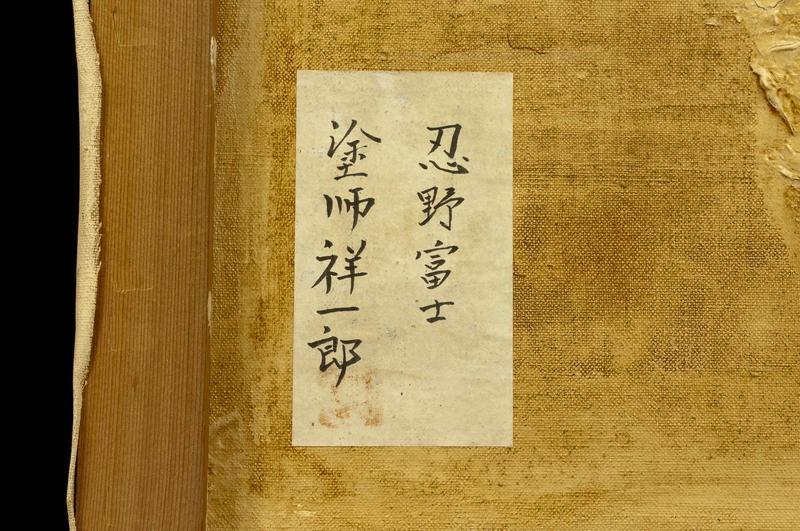 忍野富士
塗师祥一郎